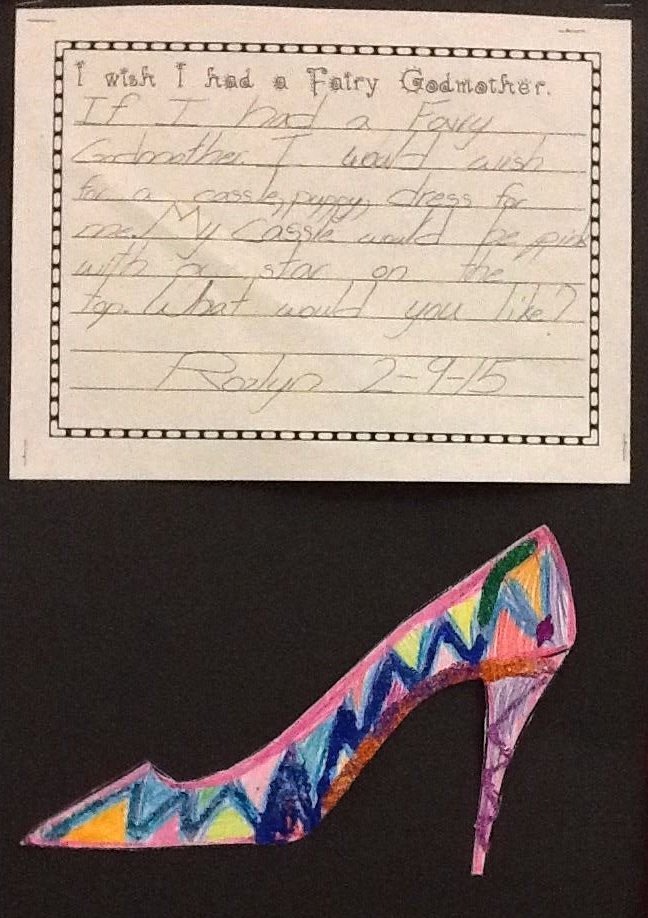 I wish I had a Fairy Godmother.
If I had a Fairy
Godmother I would wish
for a cassle, puppy, dress for
me. My Cassle would be pink
with a star on the
top. What would you like?
Rozlyn 2-9-15